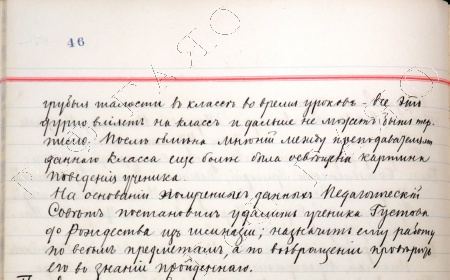 46
грубыя шалости въ классѣ во время уроковъ - все это
дурно вліяетъ на классъ и дальше не можетъ быть тер-
пимо. Послѣ обмѣна мнѣній между преподавателями
даннаго класса еще болѣе была освѣщена картина
поведенія ученика.
На основаніи полученныхъ данныхъ Педагогическій
Совѣтъ постановилъ удалить ученика Густова
до Рождества изъ гимназіи; назначить ему работу
по всѣмъ предметамъ, а по возвращеніи провѣрить
его въ знаніи пройденнаго.